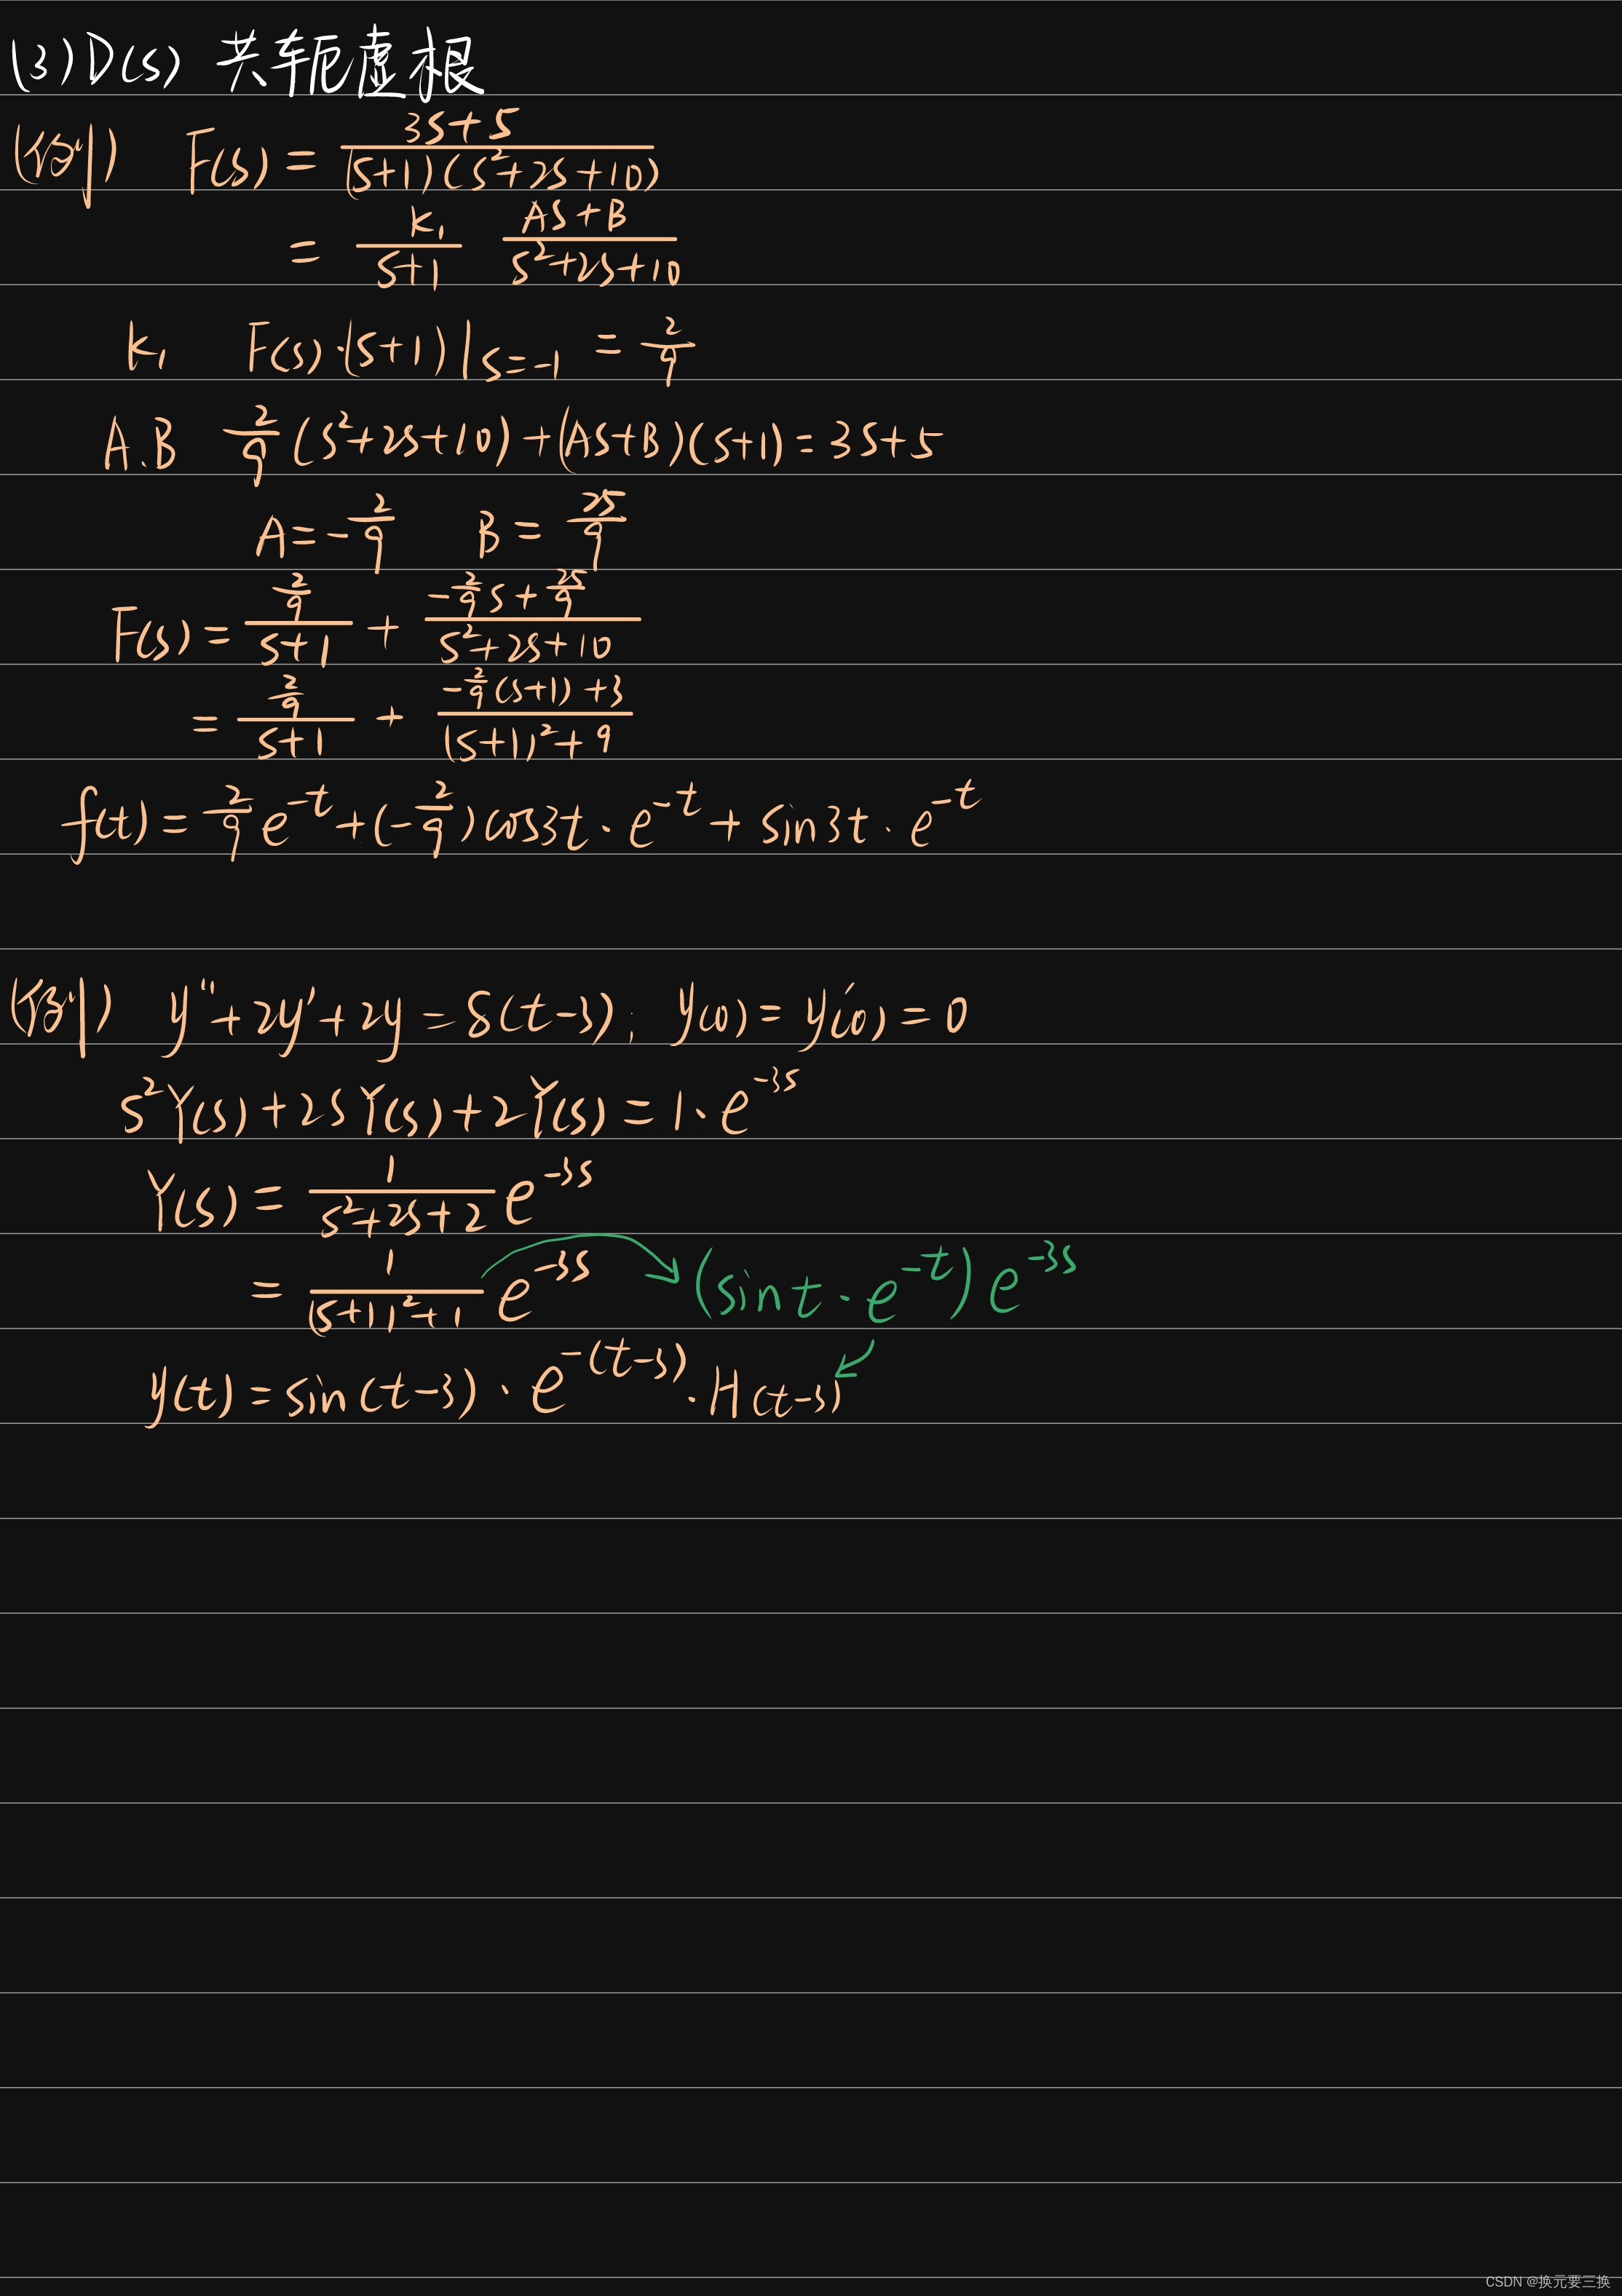 (3) D(s) 共轭虚根
(例) F(s) = \frac{3s+5}{(s+1)(s^2+2s+10)}
= \frac{k_1}{s+1} \frac{As+B}{s^2+2s+10}
k_1 F(s)·(s+1)|_{s=-1} = \frac{2}{9}
A.B \frac{2}{9}(s^2+2s+10)+(As+B)(s+1)=3s+5
A=-\frac{2}{9} B=\frac{25}{9}
F(s) = \frac{\frac{2}{9}}{s+1} + \frac{-\frac{2}{9}s+\frac{25}{9}}{s^2+2s+10}
= \frac{\frac{2}{9}}{s+1} + \frac{-\frac{2}{9}(s+1)+3}{(s+1)^2+9}
f(t) = \frac{2}{9}e^{-t}+(-\frac{2}{9})cos3t·e^{-t}+sin3t·e^{-t}
(例) y''+2y'+2y=δ(t-3); y(0)=y'(0)=0
s^2Y(s)+2sY(s)+2Y(s)=1·e^{-3s}
Y(s) = \frac{1}{s^2+2s+2}e^{-3s}
= \frac{1}{(s+1)^2+1}e^{-3s} (sin t·e^{-t})e^{-3s}
y(t)=sin(t-3)·e^{-(t-3)}·H(t-3)
CSDN @换元要三换